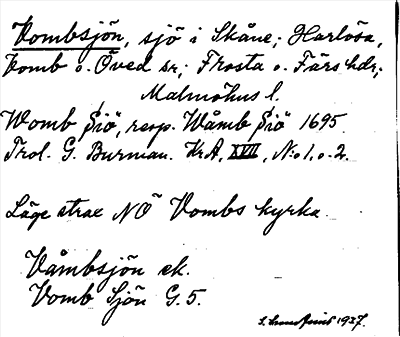 Vombsjön, sjö i Skåne; Harlösa,
Vomb o. Öved sn; Frosta o. Färs hdr;
Malmöhus l.
Womb Siö, resp. Wåmb Siö 1695.
Prol. G. Burman. KrA, XVII, N:o 1, o. 2.
Läge strax NO Vombs kyrka.
Våmbsjön ek.
Vomb Sjön G.5.
1927.